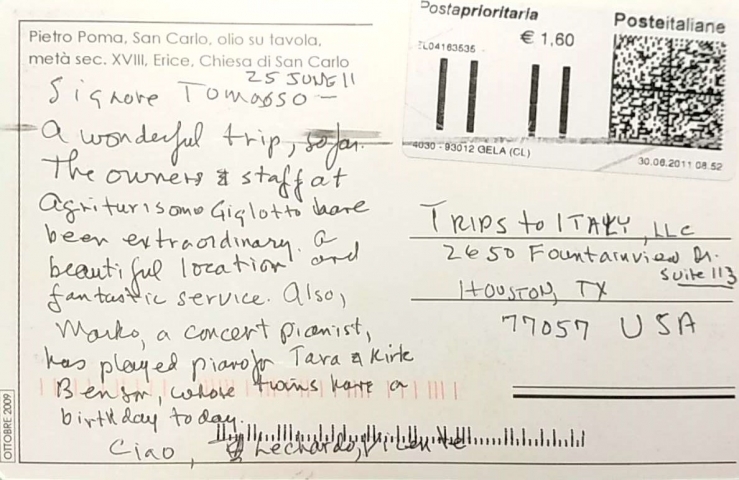 Pietro Poma, San Carlo, olio su tavola,
metà sec. XVIII, Erice, Chiesa di San Carlo
25 JUNE 11
Signore Tomasso –
a wonderful trip, so far.
The owners & staff at
agriturisomo Giglotto have
been extraordinary. a
beautiful location and
fantastic service. Also,
Marko, a concert pianist,
has played piano for Tara & Kirk
Benson, whose twins have a
birthday today.
Ciao,
Postaprioritaria
Posteitaliane
€ 1,60
4030 - 93012 GELA (CL)
30.06.2011 08.52
TRIPS to ITALY, LLC
2650 Fountainview Dr.
Suite 113
HOUSTON, TX
77057 USA
OTTOBRE 2009